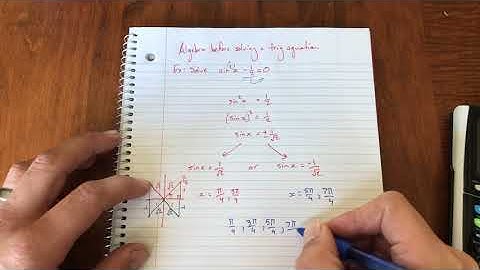 Algebra before solving a trig equation
Ex: Solve sin²x - 1/2 = 0
sin²x = 1/2
(sin x)² = 1/2
sin x = ± 1/√2
sin x = 1/√2 or sin x = -1/√2
x = π/4, 3π/4 x = 5π/4, 7π/4
π/4, 3π/4, 5π/4, 7π